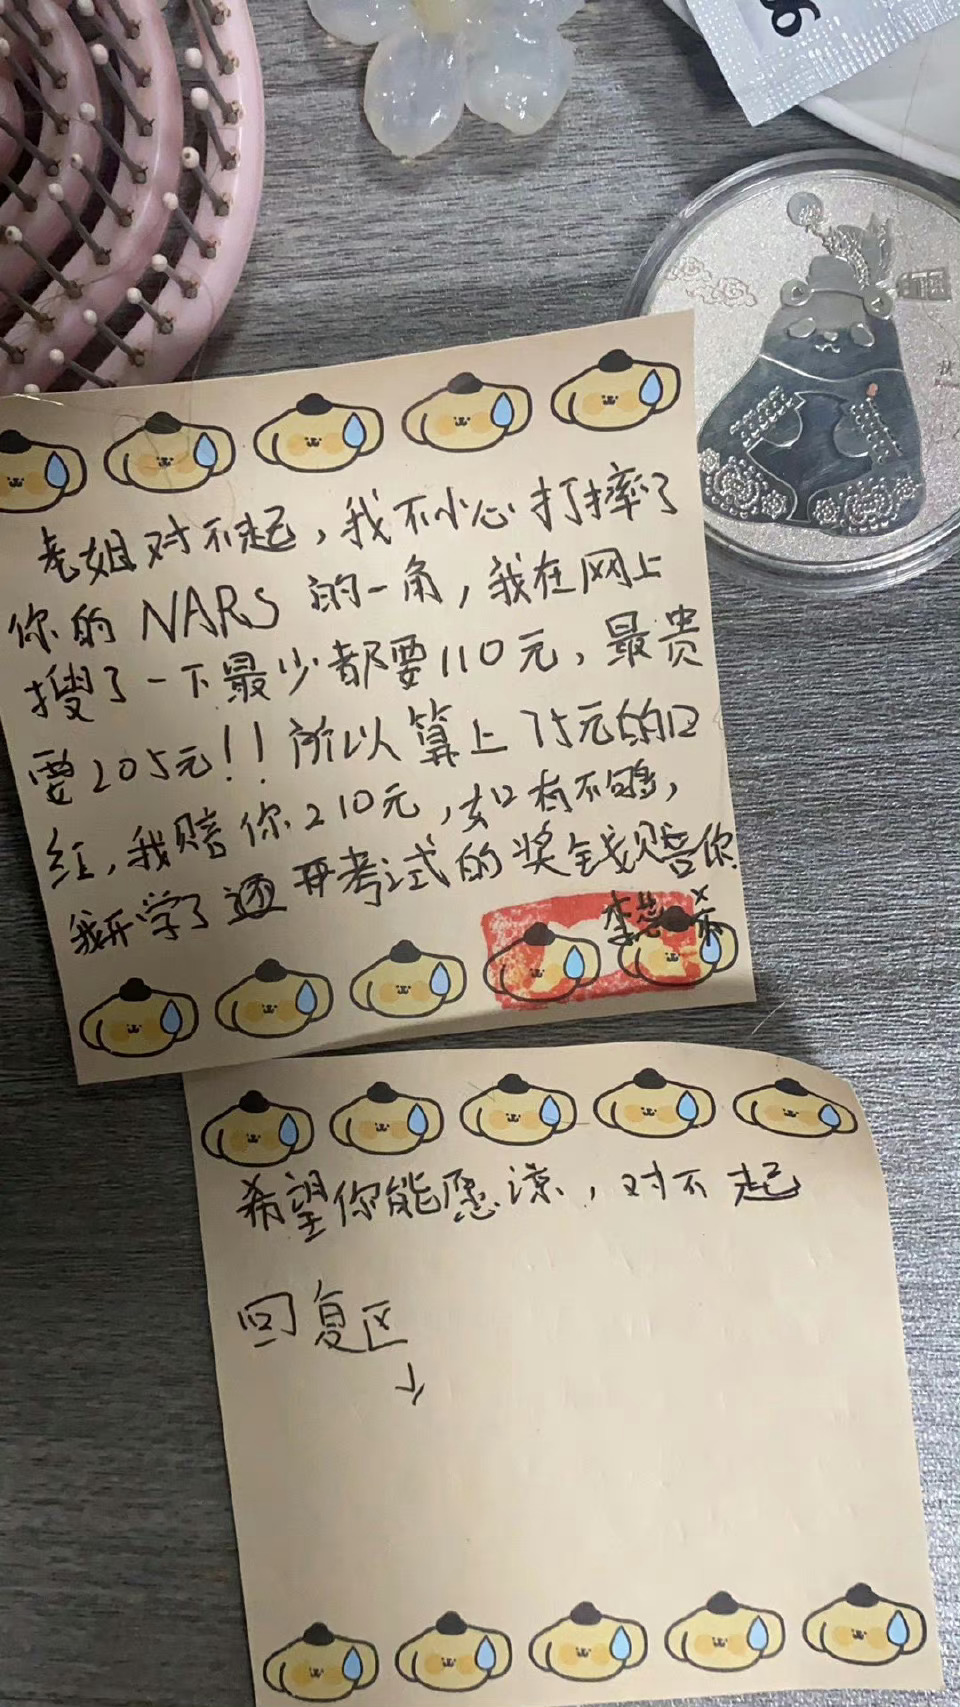 老姐对不起，我不小心打摔了
你的NARS的一角，我在网上
搜了一下最少都要110元，最贵
要205元!!所以算上75元的口
红，我赔你210元，如有不够，
我开学了 开考试的奖钱赔你
李 希
希望你能愿谅，对不起
回复区
↓